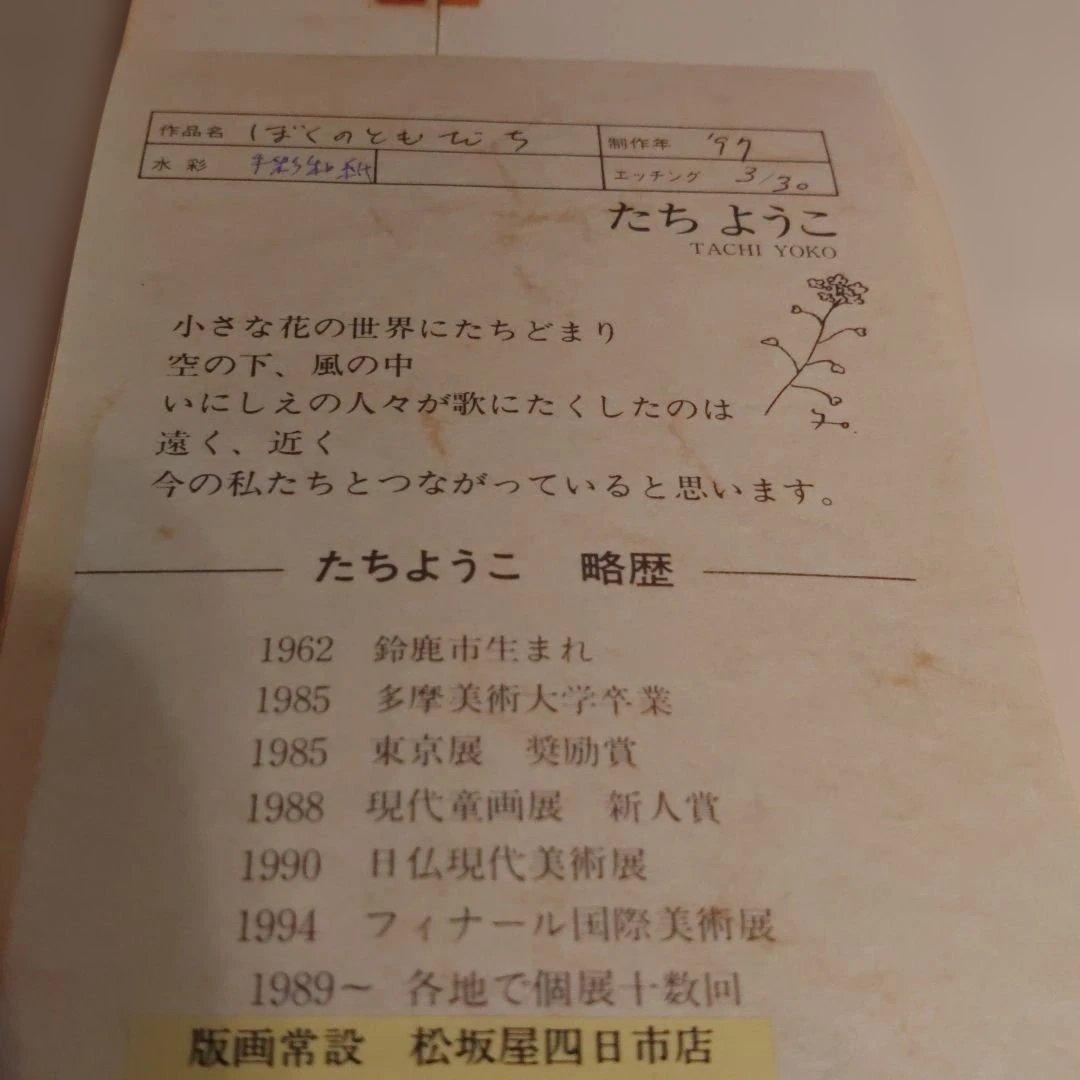 作品名 ぼくのともだち 制作年 '97
水彩 手彩和紙 エッチング 3/30
たち ようこ
TACHI YOKO
小さな花の世界にたちどまり
空の下、風の中
いにしえの人々が歌にたくしたのは
遠く、近く
今の私たちとつながっていると思います。
たちようこ 略歴
1962 鈴鹿市生まれ
1985 多摩美術大学卒業
1985 東京展 奨励賞
1988 現代童画展 新人賞
1990 日仏現代美術展
1994 フィナール国際美術展
1989～ 各地で個展十数回
版画常設 松坂屋四日市店